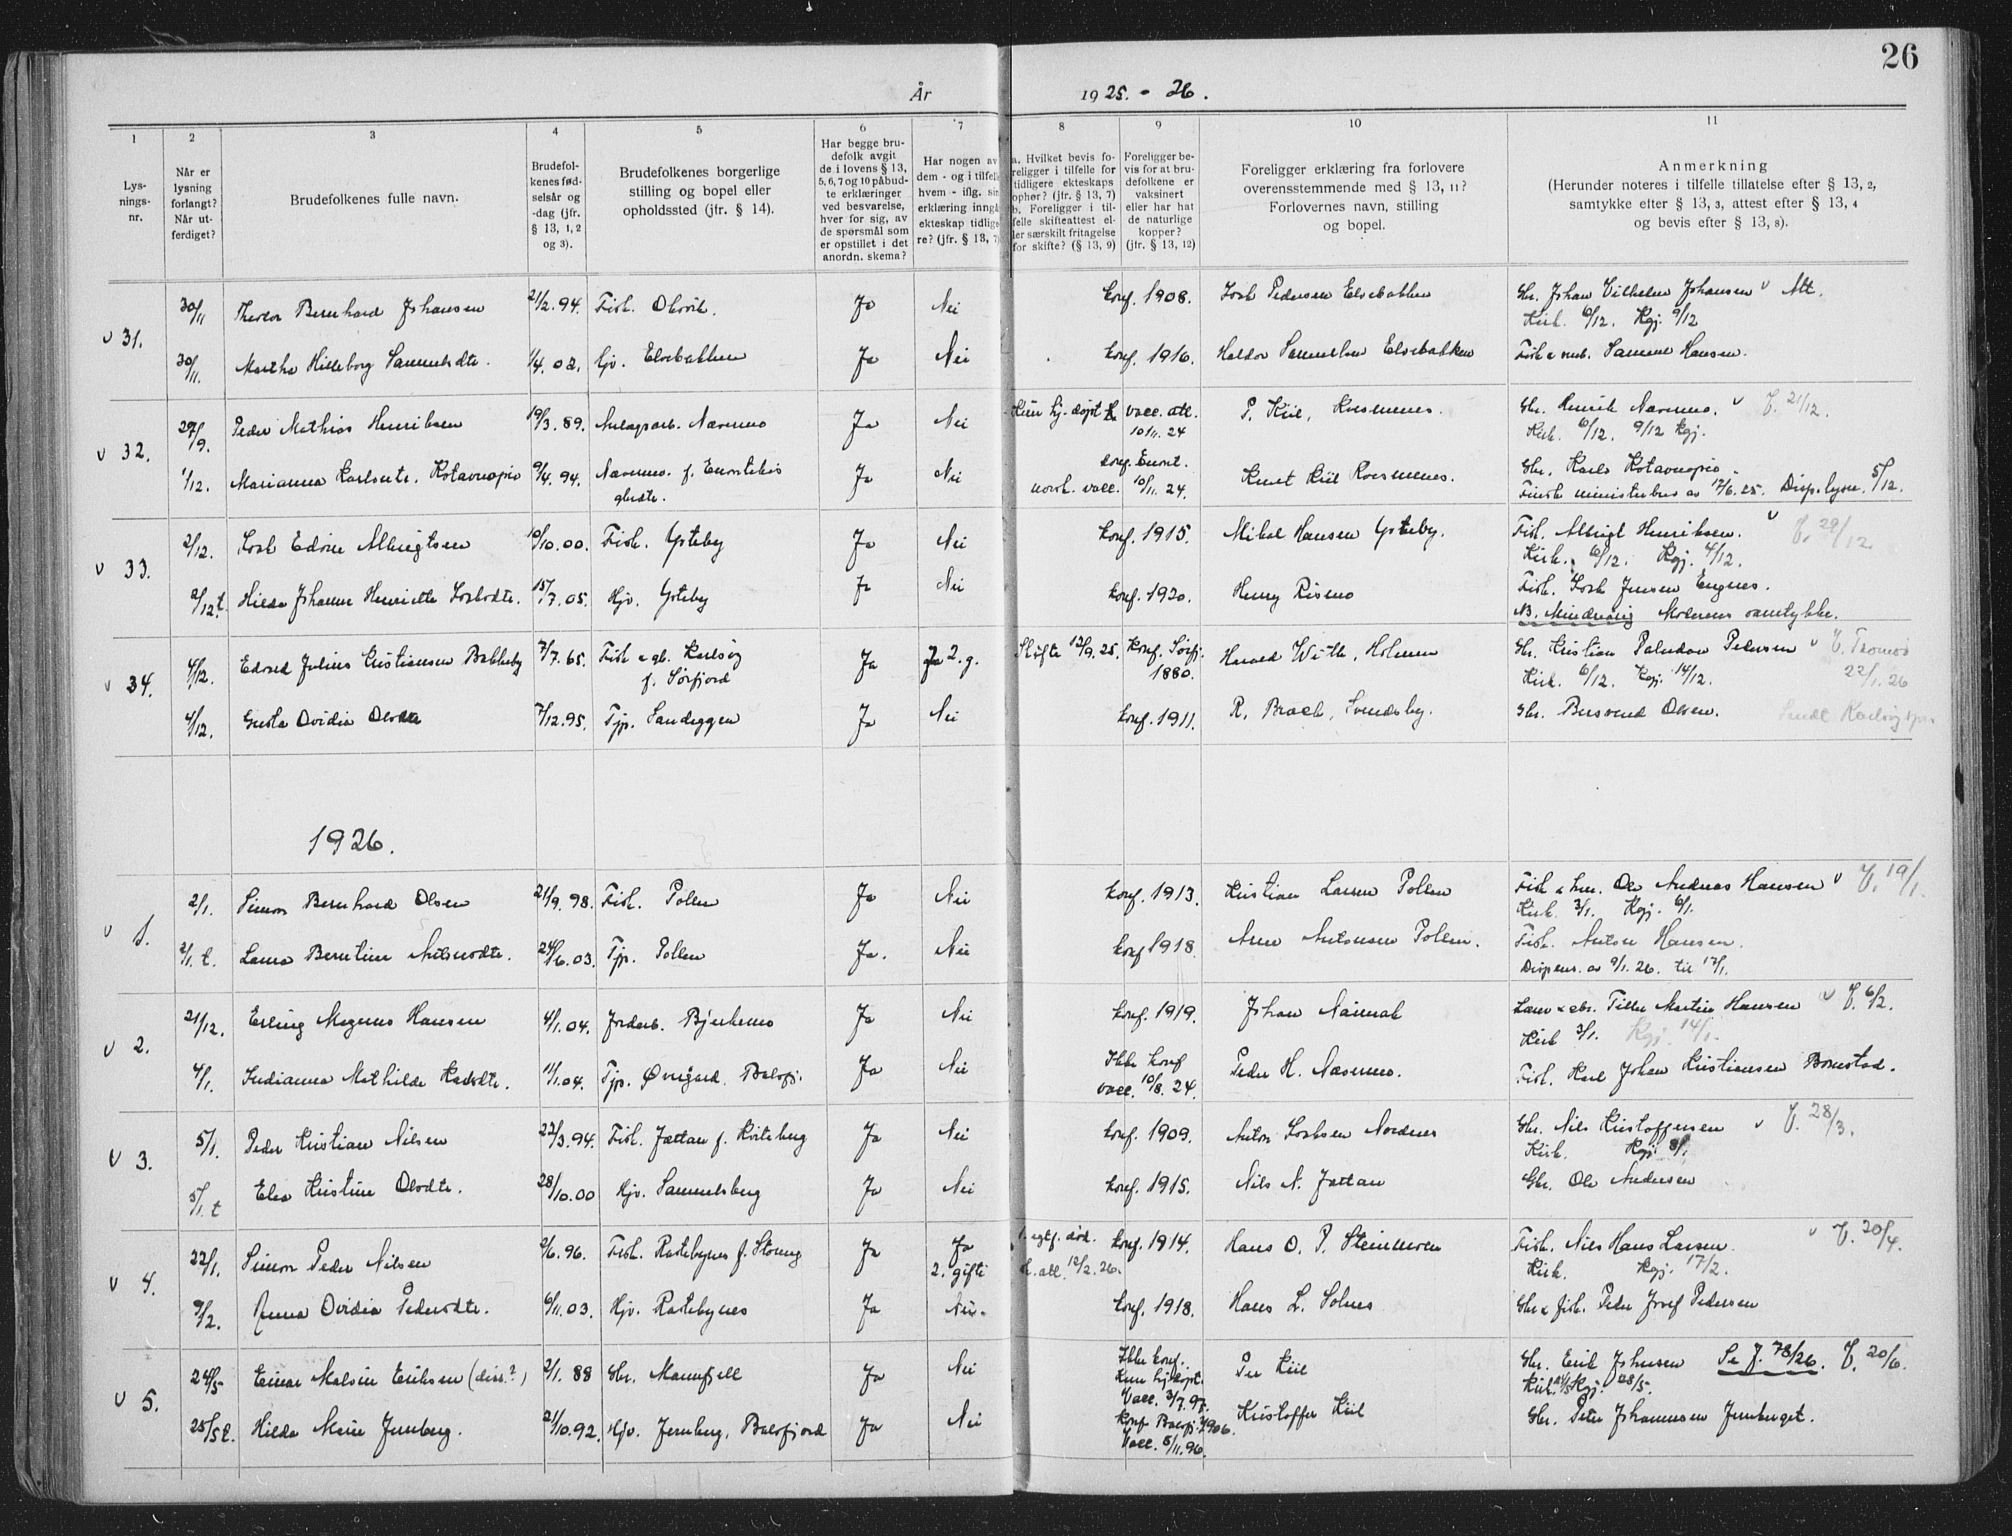 26
År 1925. - 26.
1 2 3 4 5 6 7 8 9 10 11
Lysningsnr.
Når er lysning forlangt? Når utferdiget?
Brudefolkenes fulle navn.
Brudefolkenes fødselsår og -dag (jfr. § 13, 1, 2 og 3).
Brudefolkenes borgerlige stilling og bopel eller opholdssted (jfr. § 14).
Har begge brudefolk avgit de i lovens § 13, 5, 6, 7 og 10 påbudte erklæringer ved besvarelse, hver for sig, av de spørsmål som er opstillet i det anordn. skema?
Har nogen av dem - og i tilfelle hvem - iflg. sin erklæring inngå ekteskap tidligere? (jfr. § 13, 7)
a. Hvilket bevis foreligger i tilfelle for tidligere ekteskaps ophør? (jfr. § 13, 7) b. Foreligger i tilfelle skifteattest eller særskilt fritagelse for skifte? (§ 13, 9)
Foreligger bevis for at brudefolkene er vaksinert eller har hat de naturlige kopper? (jfr. § 13, 12)
Foreligger erklæring fra forlovere overensstemmende med § 13, 11? Forlovernes navn, stilling og bopel.
Anmerkning (Herunder noteres i tilfelle tillatelse efter § 13, 2, samtykke efter § 13, 3, attest efter § 13, 4 og bevis efter § 13, 8).
v 31. 30/11 Theodor Bernhard Johansen 21/2.94. Fisk. Olsvik. Ja Nei konf. 1908. Losk Pedersen Elvebakken Gbr. Johan Vilhelm Johansen v Att.
Kirk. 6/12. Kgj. 9/12
30/11. Martha Hilleborg Samuelsdtr. 1/4.02. Hjv. Elvebakken Ja Nei konf. 1916. Haldor Samuelsen Elvebakken Fisk & smb. Samuel Hansen.
v 32. 27/9. Peder Mathias Henriksen 19/3.89. Anlagsarb. Navernes Ja Nei Kun hj. døpt vacc. att. 10/11.24 P. Kiil, Rossmenes. Gbr. Henrik Navernes. v V. 21/12.
Kirk. 6/12. 9/12 Kgj.
1/12. Marianna Karlsdtr. Kotavuopio 9/4.94. Ja Nei vacc. 10/11.24. Knut Kiil Gbr. Karl Kotavuopio
17/6.25. Disp. lysn. 5/12.
v 33. 2/12. Losk Edvin Albrigtsen 10/10.00. Fisk. Ysteby Ja Nei konf. 1915. Mikal Hansen Ysteby. Fisk. Albrigt Henriksen. v V. 29/12.
Kirk. 6/12. Kgj. 4/12.
2/12 t. Hilda Johanne Henriette 15/7.05. Hjv. Ysteby Ja Nei konf. 1920. Henry Risnes Fisk. Losk Jensen Engnes.
NB. Mindreårig Moderens samtykke.
v 34. 4/12. Edvard Julius Kristiansen Bakkeby 7/7.65. Fisk & gb. Karlsøy f. Sørfjord Ja Ja 2. g. Skifte 12/9.25. Konf. Sørfj. 1880. Harald With, Holmen Gbr. Kristian Paludan Pedersen v V. Tromsø
Kirk. 6/12. Kgj. 14/12. 22/1.26
4/12. Gusta Ovidia Olsdtr 7/12.95. Tjp. Sandeggen Ja Nei konf. 1911. R. Brock, Svendsby. Gbr. Bersvend Olsen. Sendt Karlsøy
1926.
v 1. 2/1. Simon Bernhard Olsen 21/9.98. Fisk. Pollen Ja Nei konf. 1913. Kristian Larsen Pollen Fisk & Ole Andreas Hansen v V. 19/1.
Kirk. 3/1. Kgj. 6/1.
2/1. t. Laura Berntine Antonsdtr. 24/6.03. Tjp. Pollen Ja. Nei konf 1918. Arne Antonsen Pollen. Fisk. Anton Hansen.
Dispens. av 9/1.26. til 12/1.
v 2. 21/12. Erling Magnus Hansen 4/1.04. Jordarb. Bjerkenes Ja Nei konf. 1919. Johan Tiller Martin Hansen v V. 6/2.
Kirk 3/1. Kgj. 14/1.
4/1. Indianna Mathilde Karlsdtr. 11/1.04. Tjp. Øvergård. Balsfj. Ja Nei Ikke konf vacc. 10/8.24. Peder H. Navernes. Fisk. Karl Johan Kristiansen Bomstad.
v 3. 5/1. Peder Kristian Nilsen 22/3.94. Fisk. Jøttan f. Kviteberg Ja Nei konf. 1909. Anton Nordnes Gbr. Nils Kristoffersen v V. 28/3.
Kirk. Kgj. 8/1
5/1. t Elea Kristine Olsdtr. 28/10.00 Hjv. Samuelsberg Ja Nei konf. 1915. Nils N. Jøttan Gbr. Ole Andersen
v 4. 22/1. Simon Peder Nilsen 2/6.96. Fisk. Rastebynes f. Ja Ja 2. gifte 12/2.26. konf. 1914. Hans O. P. Steinnoen Fisk. Nils Hans Larsen. v V. 20/4.
Kirk. Kgj. 17/2.
9/2. Anna Ovidia Pedersdtr. 6/11.03. Hjv. Rastebynes Ja Nei. konf. 1918. Hans L. Solnes Gbr & fisk. Peder Josef Pedersen
v 5. 24/5 Einar Malvin Eriksen (diss.?) 2/1.88 Gbr. Mannfjell Ja Nei Ikke konf. Kun hj. døpt. Vacc. 3/7.97. Per Kiil Gbr. Erik Johnsen Se J. 78/26. V. 20/6.
Kirk. Kgj. 28/5.
25/5 t. Hilda Marie Jernberg. 21/10.92. Hjv. Jernberg, Balsfjord Ja Nei Konf Balsfj. 1906. Vacc. 5/11.96. Kristoffer Kiil Gbr. Peter Johannesen Jernberget.